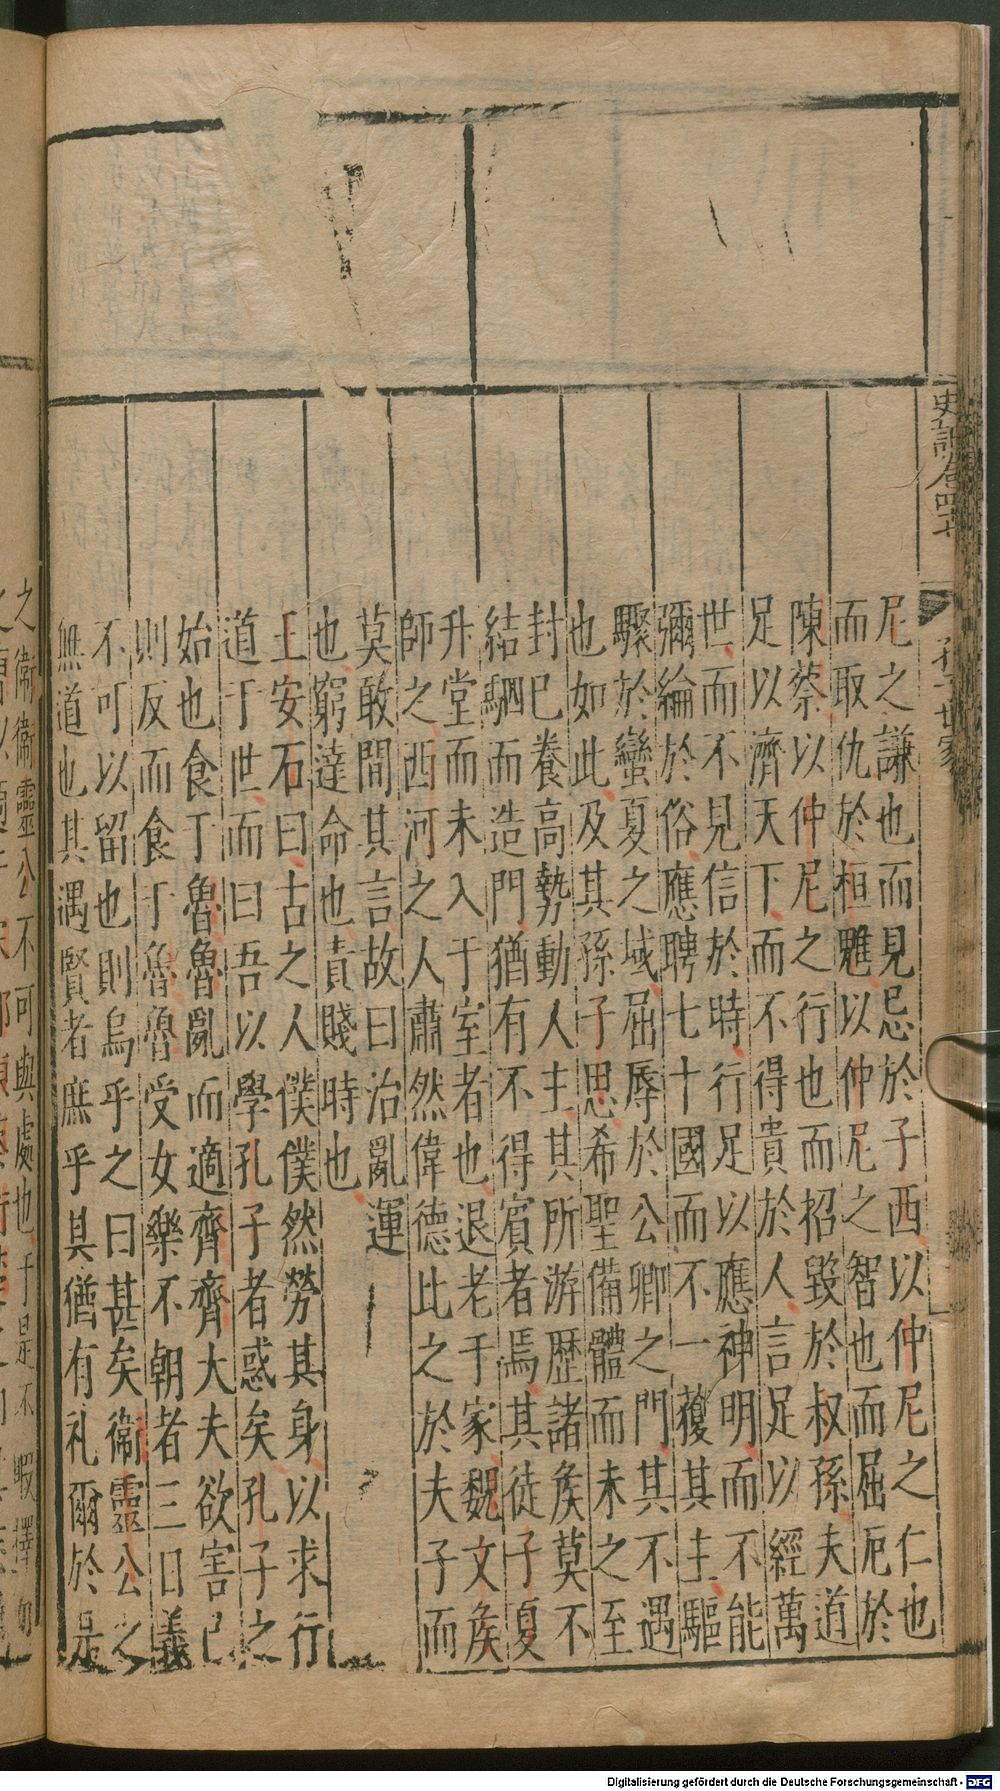 史記卷四十
孔子世家
尼之謙也而見忌於子西以仲尼之仁也
而取仇於桓魋以仲尼之智也而屈厄於
陳蔡以仲尼之行也而招毀於叔孫夫道
足以濟天下而不得貴於人言足以經萬
世而不見信於時行足以應神明而不能
彌綸於俗應聘七十國而不一獲其主驅
驟於蠻夏之域屈辱於公卿之門其不遇
也如此及其孫子思希聖備體而未之至
封已養高勢動人主其所游歷諸矦莫不
結駟而造門猶有不得賓者焉其徒子夏
升堂而未入于室者也退老于家魏文矦
師之西河之人肅然偉德此之於夫子而
莫敢間其言故曰治亂運
也窮達命也責賤時也
王安石曰古之人僕僕然勞其身以求行
道于世而曰吾以學孔子者惑矣孔子之
始也食于魯魯亂而適齊齊大夫欲害已
則反而食于魯魯受女樂不朝者三日義
不可以留也則烏乎之曰甚矣衞靈公之
無道也其遇賢者庶乎其猶有礼爾於是
之衞衞靈公不可與處也于是不暇擇
Digitalisierung gefördert durch die Deutsche Forschungsgemeinschaft - DFG